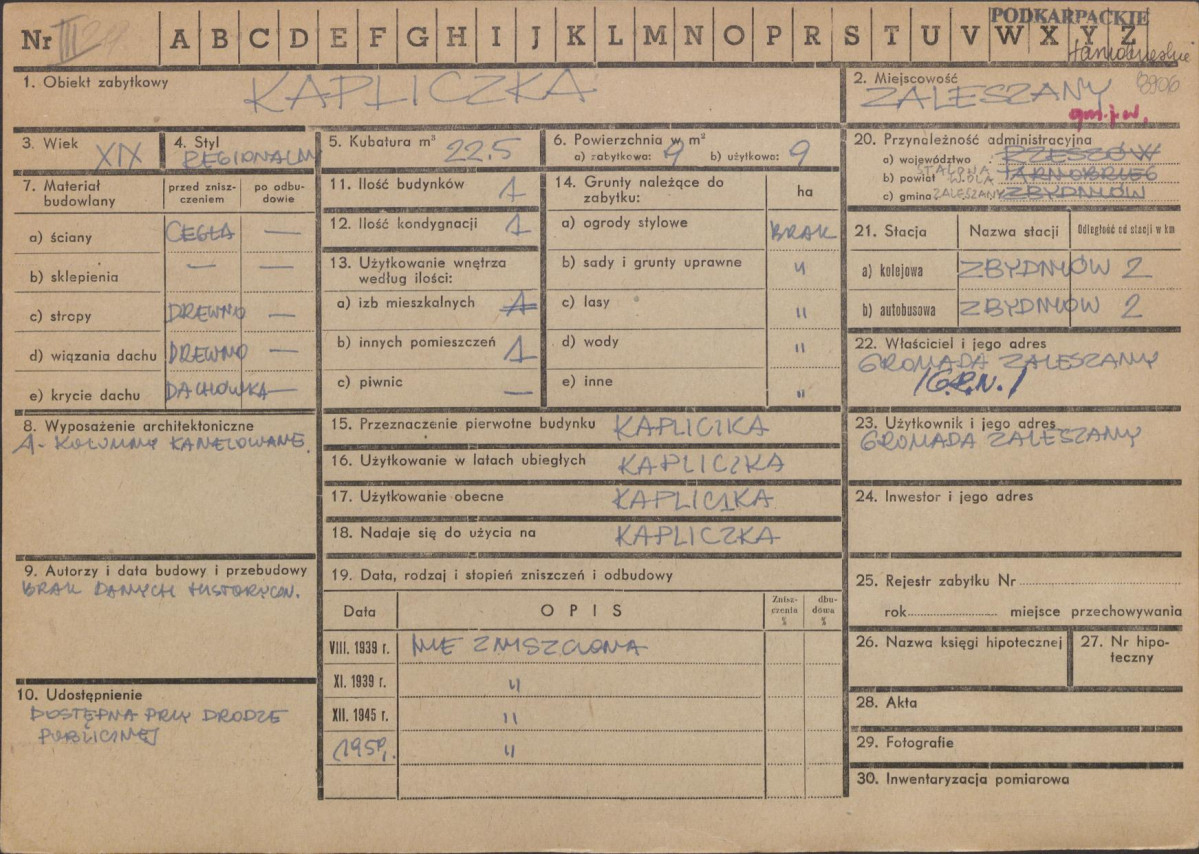 Nr III 29 A B C D E F G H I J K L M N O P R S T U V W X Y Z
PODKARPACKIE
1. Obiekt zabytkowy KAPLICZKA
2. Miejscowość 3906
ZALESZANY
gm. j.w.
3. Wiek XIX
4. Styl REGIONALNY
5. Kubatura m³ 22.5
6. Powierzchnia w m²
a) zabytkowa: 9 b) użytkowa: 9
20. Przynależność administracyjna
a) województwo RZESZÓW
b) powiat STALOWA WOLA TARNOBRZEG
c) gmina ZALESZANY ZBYDNIÓW
7. Materiał budowlany
przed zniszczeniem
po odbudowie
a) ściany CEGŁA —
b) sklepienia — —
c) stropy DREWNO —
d) wiązania dachu DREWNO —
e) krycie dachu DACHÓWKA —
11. Ilość budynków 1
12. Ilość kondygnacji 1
13. Użytkowanie wnętrza
według ilości:
a) izb mieszkalnych 1
b) innych pomieszczeń 1
c) piwnic —
14. Grunty należące do
zabytku:
ha
a) ogrody stylowe BRAK
b) sady i grunty uprawne "
c) lasy "
d) wody "
e) inne "
21. Stacja Nazwa stacji Odległość od stacji w km
a) kolejowa ZBYDNIÓW 2
b) autobusowa ZBYDNIOW 2
22. Właściciel i jego adres
GROMADA ZALESZANY
/G.R.N./
8. Wyposażenie architektoniczne
1- KOLUMNY KANELOWANE.
15. Przeznaczenie pierwotne budynku KAPLICZKA
16. Użytkowanie w latach ubiegłych KAPLICZKA
17. Użytkowanie obecne KAPLICZKA
18. Nadaje się do użycia na KAPLICZKA
23. Użytkownik i jego adres
GROMADA ZALESZANY
24. Inwestor i jego adres
9. Autorzy i data budowy i przebudowy
BRAK DANYCH HISTORYCZN.
19. Data, rodzaj i stopień zniszczeń i odbudowy
Data OPIS
Znisz-
czenia
%
dbu-
dowa
%
VIII. 1939 r. NIE ZNISZCZONA
XI. 1939 r. "
XII. 1945 r. "
1959r. "
25. Rejestr zabytku Nr
rok miejsce przechowywania
26. Nazwa księgi hipotecznej
27. Nr hipo-
teczny
10. Udostępnienie
DOSTĘPNA PRZY DRODZE
PUBLICZNEJ
28. Akta
29. Fotografie
30. Inwentaryzacja pomiarowa